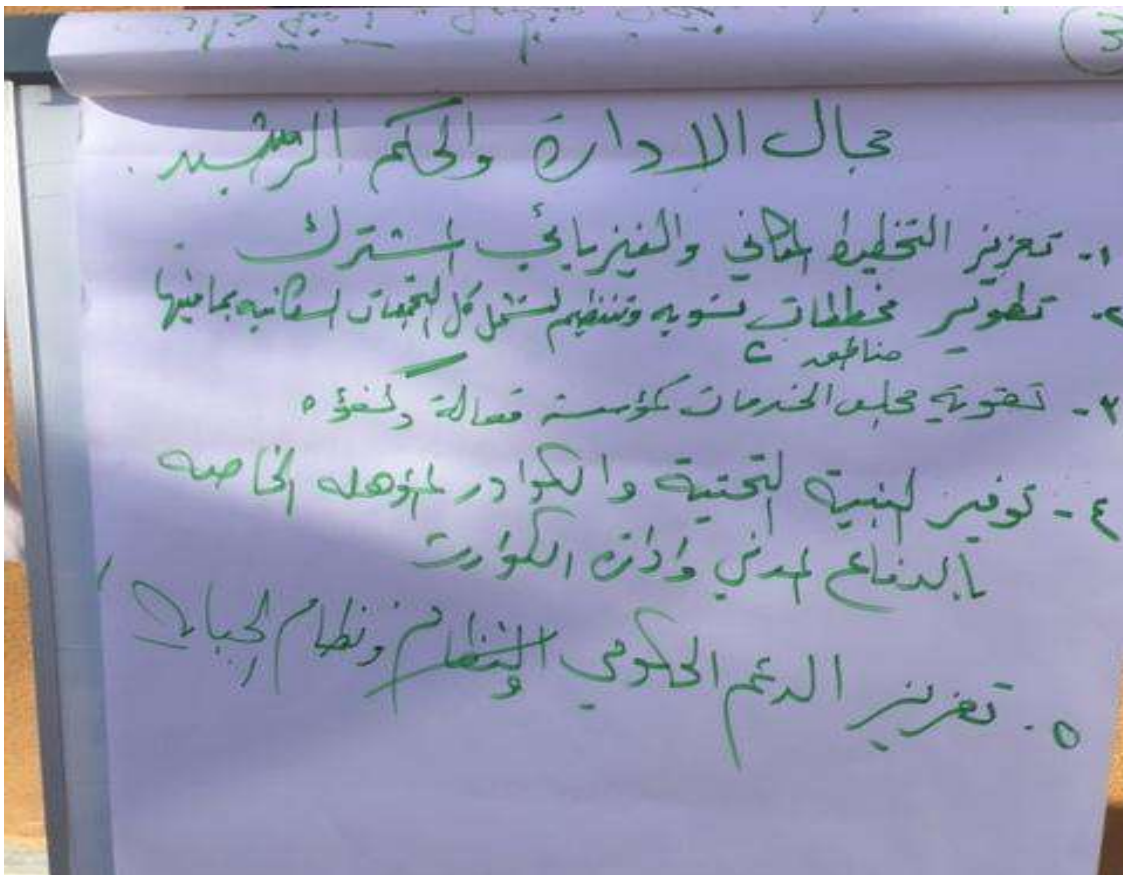 3
مجال الادارة والحكم الرشيد.
١- تعزيز التخطيط المكاني والفيزيائي المشترك
٢- تطوير مخططات تسويه وتنظيم لتشمل كل التجمعات السكانيه بما فيها
مناطق C
٣- تقوية مجلس الخدمات كمؤسسة فعالة وكفؤه
٤- توفير البنية التحتية والكوادر المؤهله الخاصه
بالدفاع المدني وادارة الكوارث
٥- تعزيز الدعم الحكومي ونظام الجباية